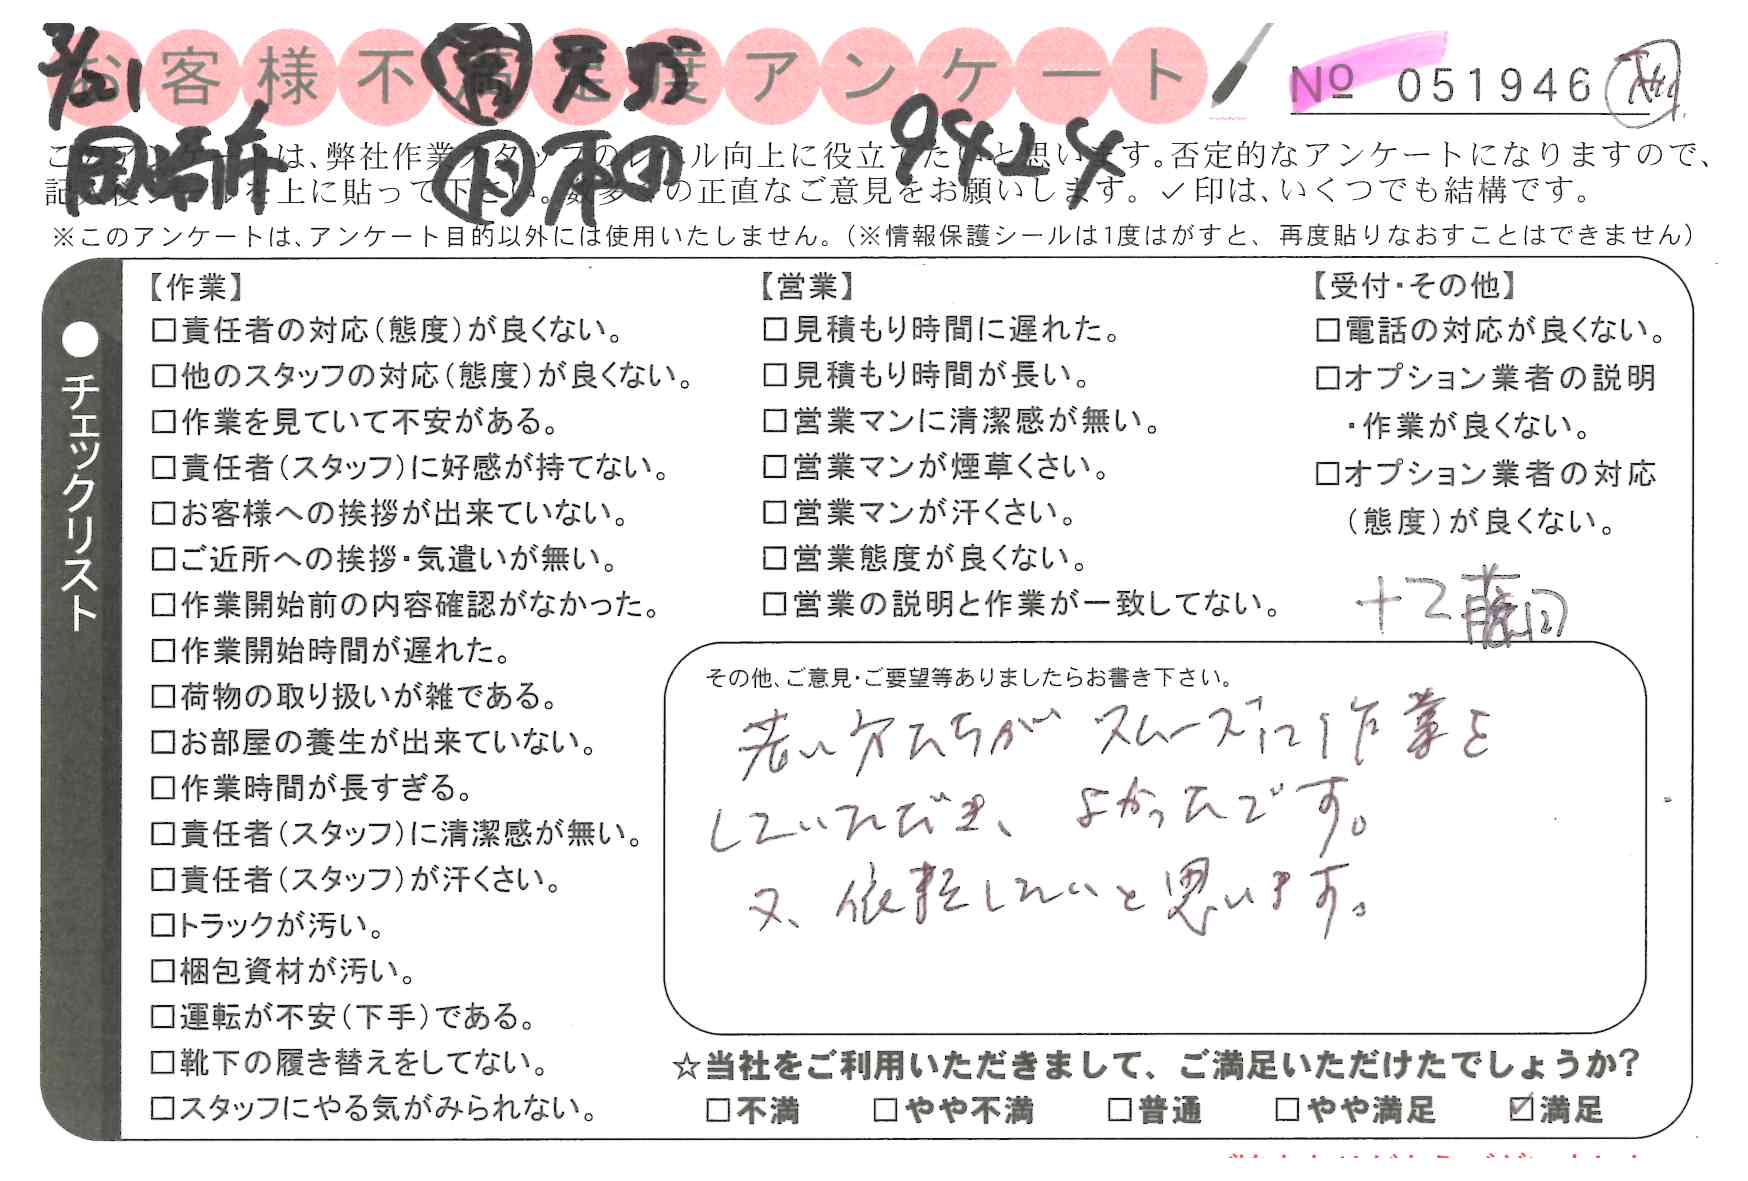 お客様不満足度アンケート
No 051946
3/21
9424
このアンケートは、弊社作業スタッフのレベル向上に役立てたいと思います。否定的なアンケートになりますので、
記入後シールを上に貼って下さい。数多くの正直なご意見をお願いします。✓印は、いくつでも結構です。
※このアンケートは、アンケート目的以外には使用いたしません。（※情報保護シールは1度はがすと、再度貼りなおすことはできません）
●チェックリスト
【作業】
□責任者の対応（態度）が良くない。
□他のスタッフの対応（態度）が良くない。
□作業を見ていて不安がある。
□責任者（スタッフ）に好感が持てない。
□お客様への挨拶が出来ていない。
□ご近所への挨拶・気遣いが無い。
□作業開始前の内容確認がなかった。
□作業開始時間が遅れた。
□荷物の取り扱いが雑である。
□お部屋の養生が出来ていない。
□作業時間が長すぎる。
□責任者（スタッフ）に清潔感が無い。
□責任者（スタッフ）が汗くさい。
□トラックが汚い。
□梱包資材が汚い。
□運転が不安（下手）である。
□靴下の履き替えをしてない。
□スタッフにやる気がみられない。
【営業】
□見積もり時間に遅れた。
□見積もり時間が長い。
□営業マンに清潔感が無い。
□営業マンが煙草くさい。
□営業マンが汗くさい。
□営業態度が良くない。
□営業の説明と作業が一致してない。
【受付・その他】
□電話の対応が良くない。
□オプション業者の説明
・作業が良くない。
□オプション業者の対応
（態度）が良くない。
その他、ご意見・ご要望等ありましたらお書き下さい。
若い方たちがスムーズに作業を
していただき、よかったです。
又、依頼したいと思います。
☆当社をご利用いただきまして、ご満足いただけたでしょうか?
□不満 □やや不満 □普通 □やや満足 ☑満足